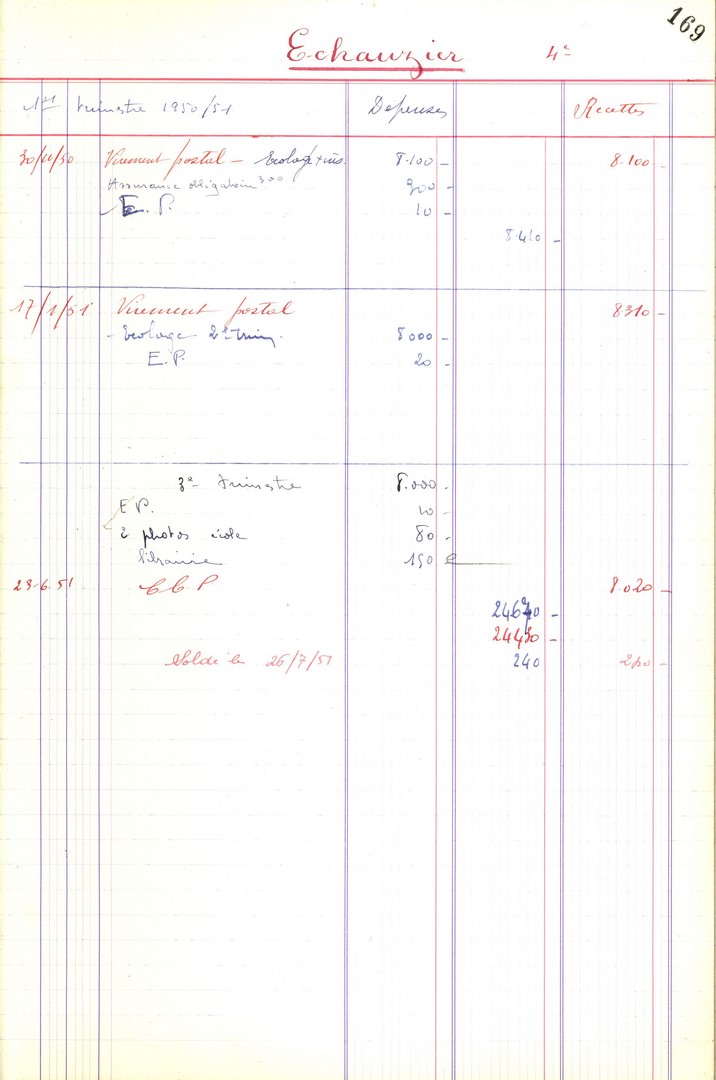 169
Echauzier 4e
1er trimestre 1950/51 Depenses Recettes
30/11/50 Virement postal - Ecolage + ins. 8.100 - 8.100 -
Assurance obligatoire 300 300 -
E. P. 10 -
8.410 -
17/1/51 Virement postal 8310 -
- Ecolage 2e trim. 8000 -
E.P. 20 -
3e trimestre 8.000 -
E P. 10 -
2 photos école 80 -
librairie 150
23.6.51 C C P 8.020 -
-
24430 -
Soldé le 26/7/51 240 240 -